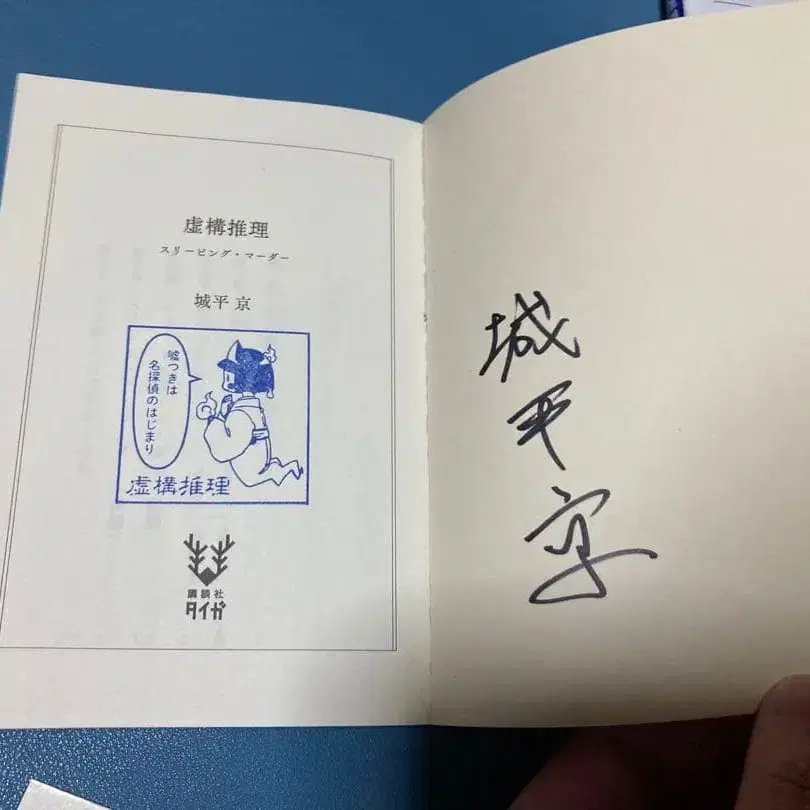 虚構推理
スリーピング・マーダー
城平 京
嘘つきは
名探偵のはじまり
虚構推理
講談社
タイガ
城
平
京